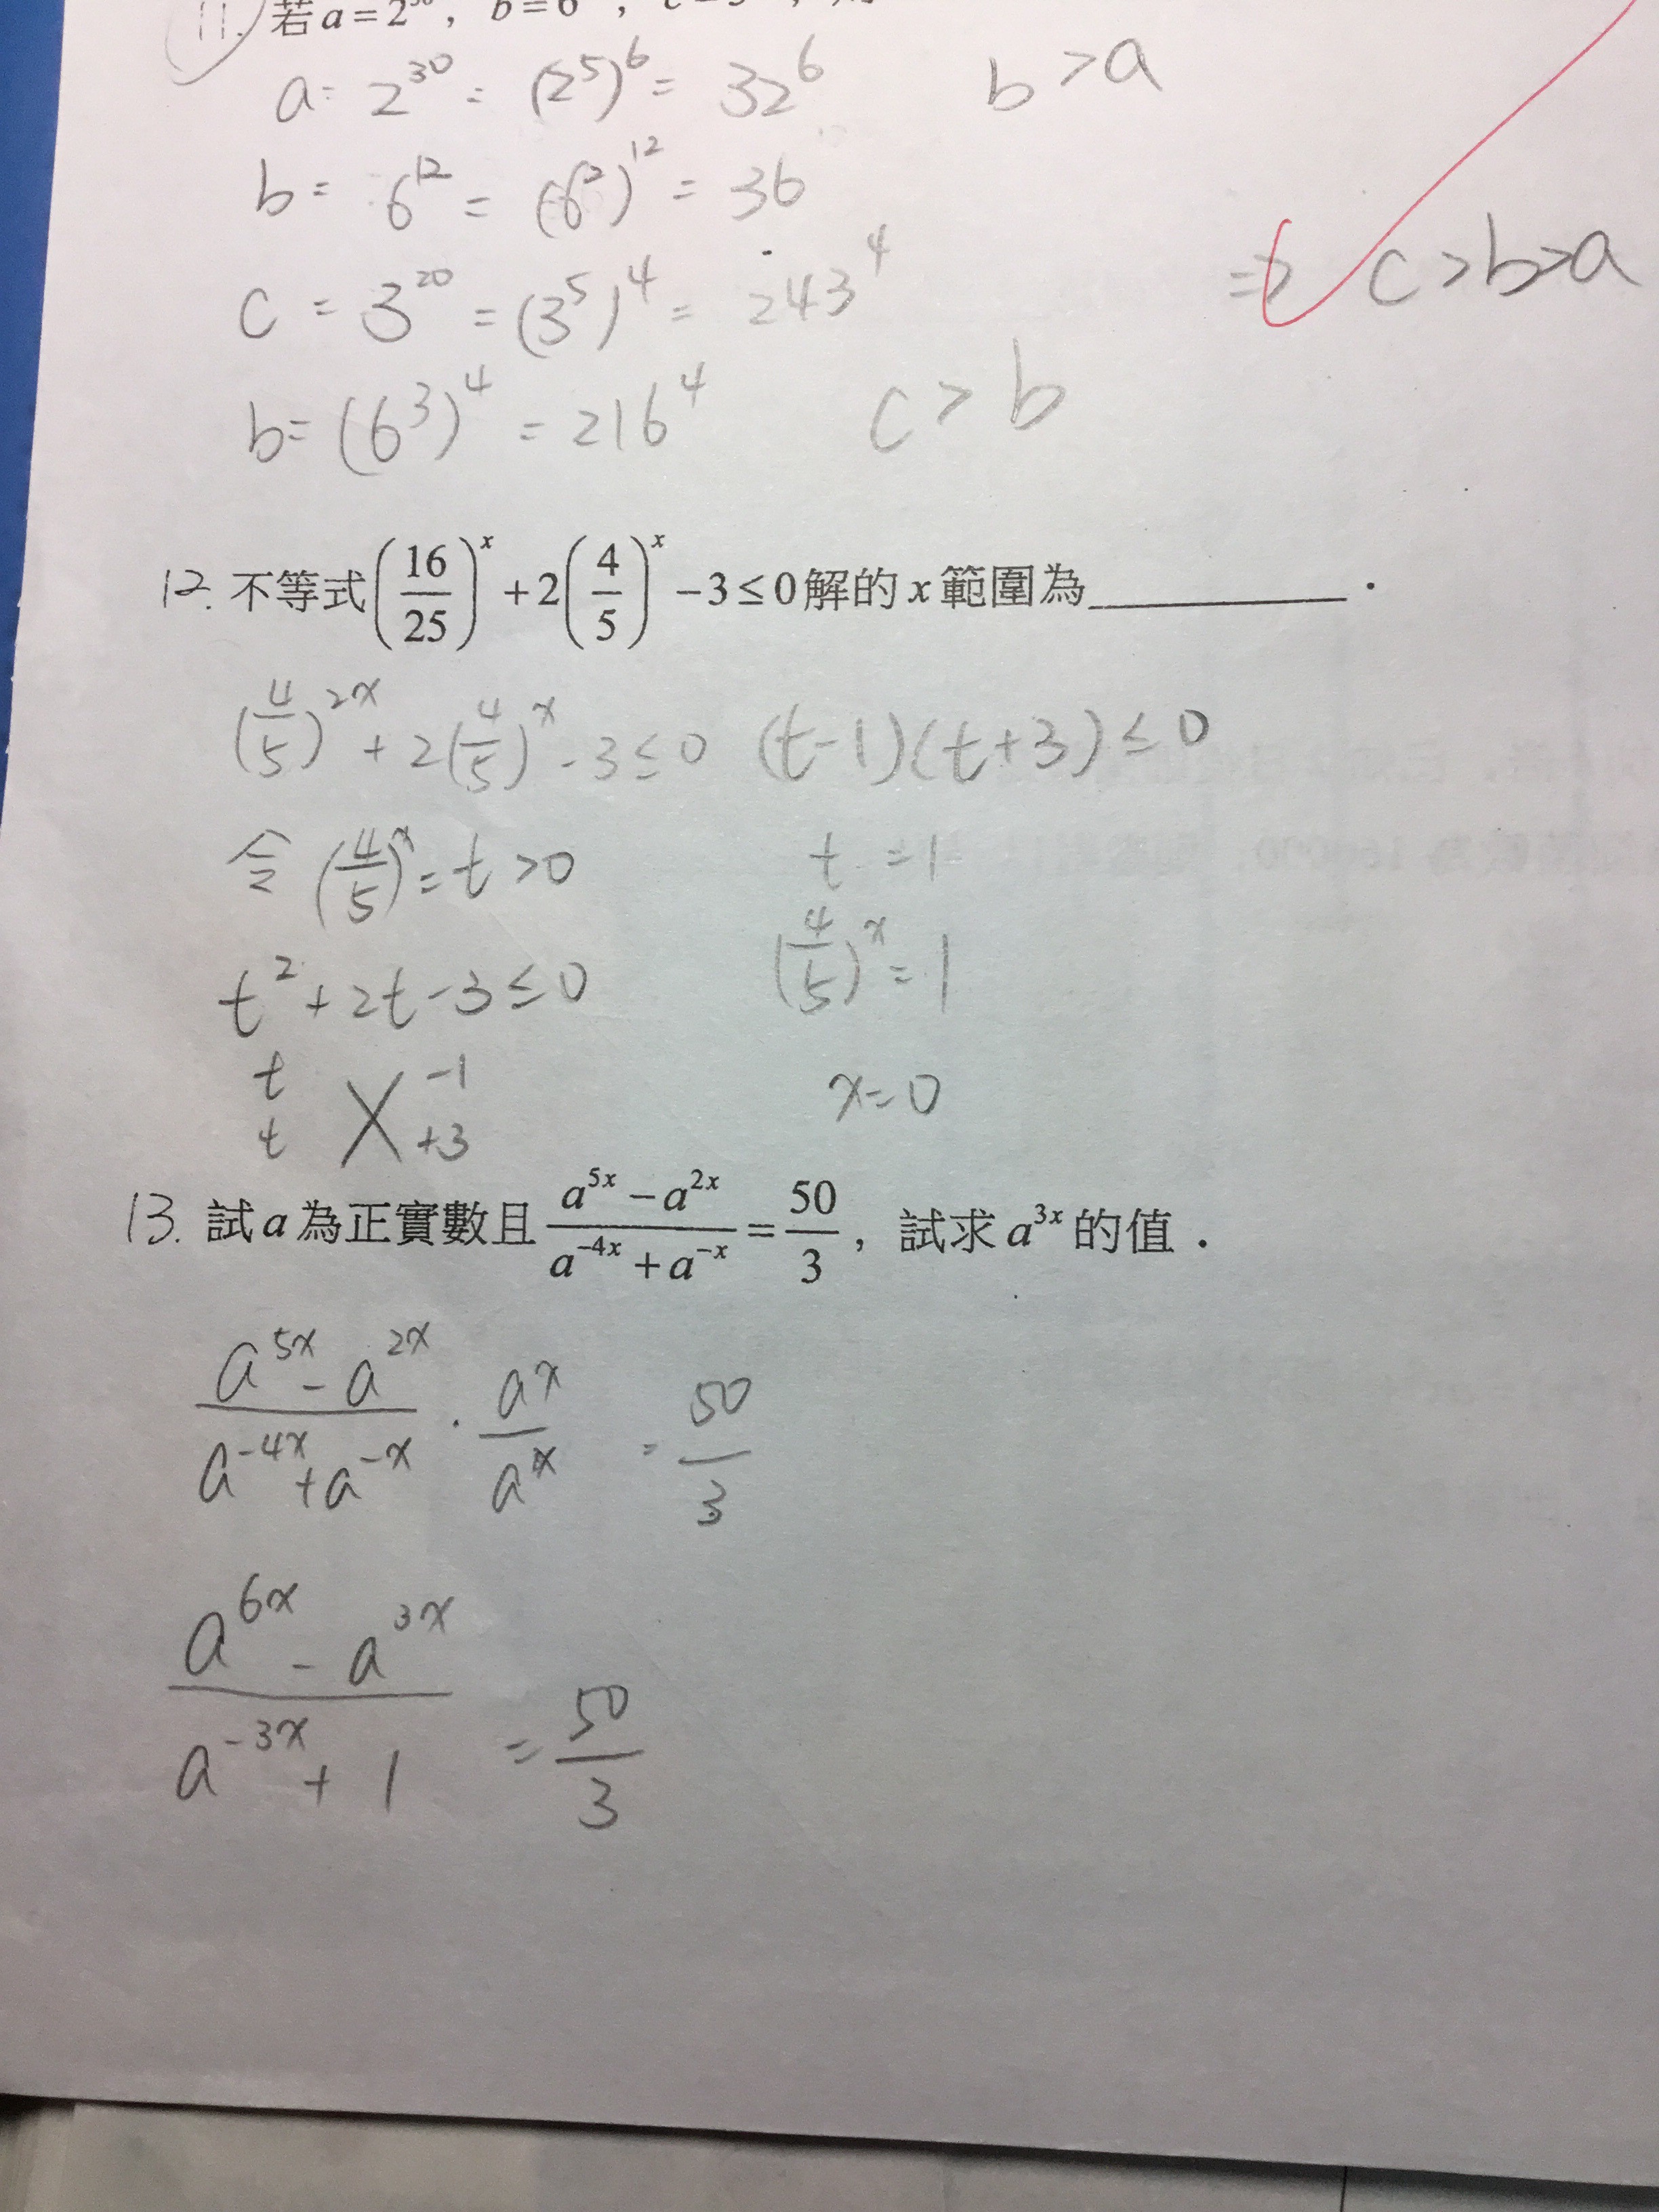 11. 若 a = 2^30, b = 6
a = 2^30 = (2^5)^6 = 32^6 b > a
b = 6^12 = (6^2)^12 = 36
c = 3^20 = (3^5)^4 = 243^4 ⇒ c > b > a
b = (6^3)^4 = 216^4 c > b
12. 不等式 (16/25)^x + 2(4/5)^x − 3 ≤ 0 解的 x 範圍為____________.
(4/5)^2x + 2(4/5)^x − 3 ≤ 0 (t−1)(t+3) ≤ 0
令 (4/5)^x = t > 0 t = 1
t^2 + 2t − 3 ≤ 0 (4/5)^x = 1
t −1
t +3 x = 0
13. 試 a 為正實數且 (a^5x − a^2x)/(a^−4x + a^−x) = 50/3, 試求 a^3x 的值.
(a^5x − a^2x)/(a^−4x + a^−x) · a^x/a^x = 50/3
(a^6x − a^3x)/(a^−3x + 1) = 50/3